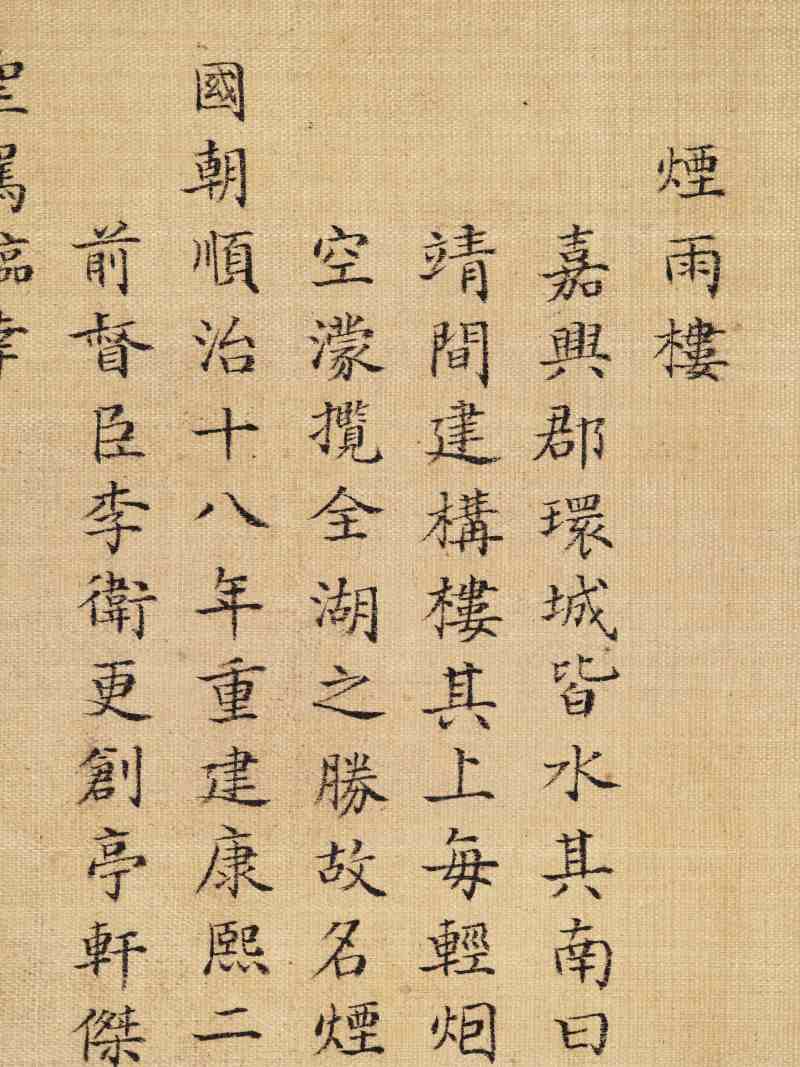 煙雨樓
嘉興郡環城皆水其南曰
靖間建構樓其上每輕炟
空濛攬全湖之勝故名煙
國朝順治十八年重建康熙二
前督臣李衛更創亭軒傑
聖駕臨幸